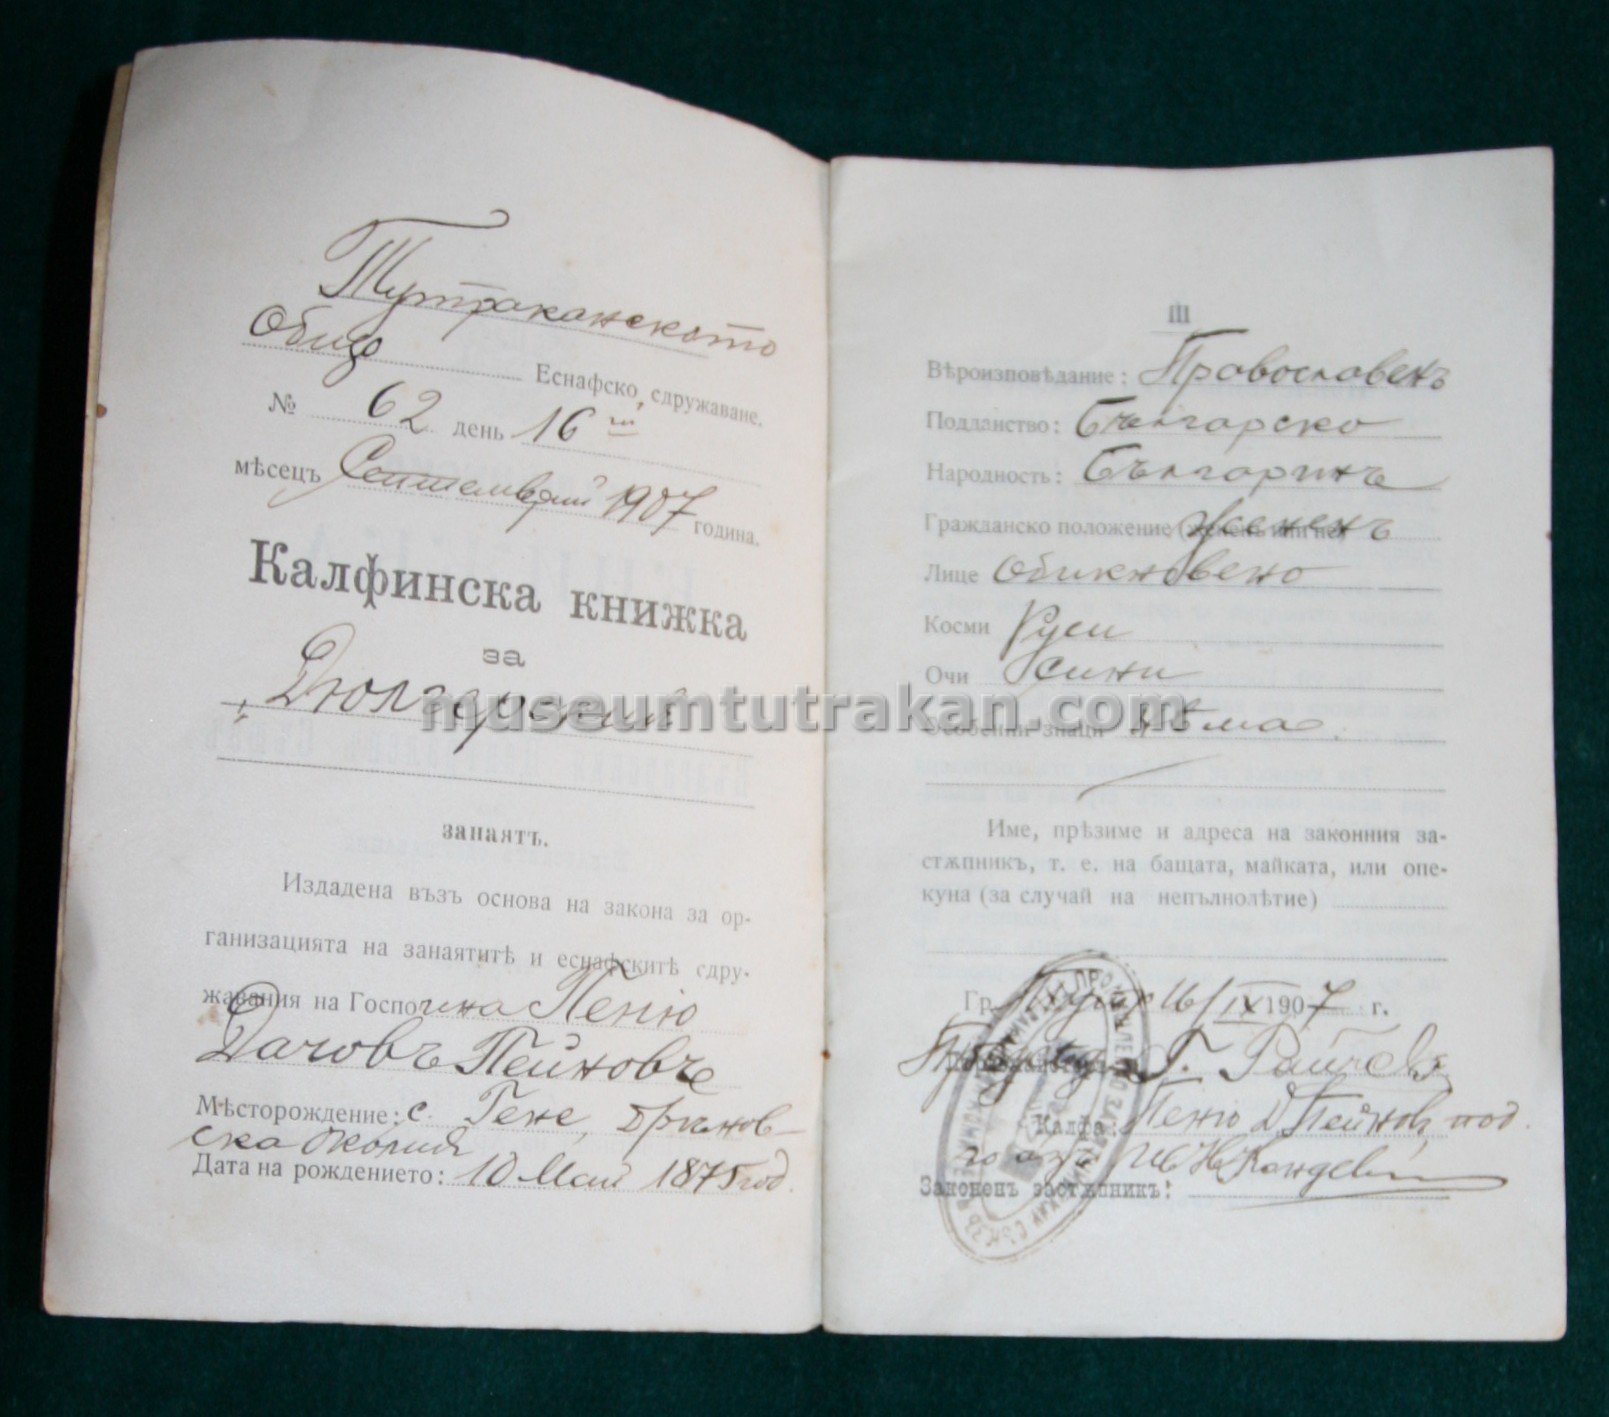 Тутраканското
Общо Еснафско сдружаване.
№ 62 день 16 ий
мѣсецъ Септемврий 1907 година.
Калфинска книжка
за
Дюлгерския
занаятъ.
Издадена възъ основа на закона за ор-
ганизацията на занаятитѣ и еснафскитѣ сдру-
жавания на Господина Пеню
Дачовъ Пейновъ
Мѣсторождение: с. Гене, Дрѣнов-
ска околия
Дата на рождението: 10 Май 1875 год.
III
Вѣроизповѣдание: Провославенъ
Подданство: Българско
Народность: Българинъ
Гражданско положение (жененъ или не) жененъ
Лице обикновено
Косми Руси
Очи сини
Особенни знаци нѣма.
Име, прѣзиме и адреса на законния за-
стѫпникъ, т. е. на бащата, майката, или опе-
куна (за случай на непълнолѣтие)
Гр. 16/IX 1907 г.
Г. Райчевъ
Калфа: Пеню Д. Пейновъ, под.
Законенъ застѫпникъ:
museumtutrakan.com